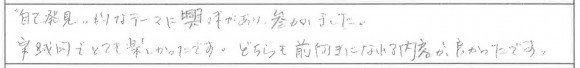 "自己発見"的なテーマに興味があり、参加しました。
実践的でとても楽しかったです。どちらも前向きになれる内容が良かったです。